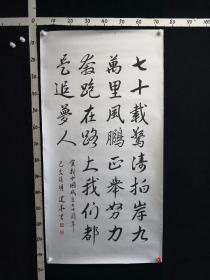 七十載驚濤拍岸九
萬里風鵬正舉努力
奔跑在路上我们都
是追夢人
賀新中国成立七十周年
己亥 書